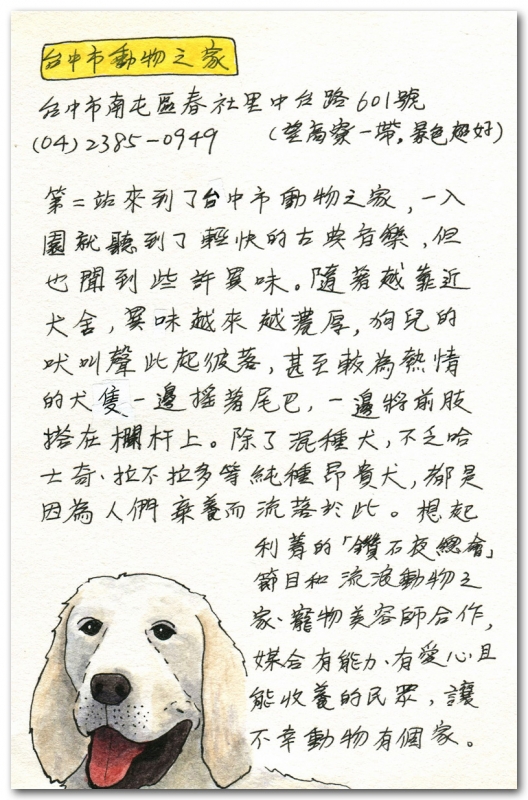 台中市動物之家
台中市南屯區春社里中台路601號
(04)2385-0949 (望高寮一帶,景色超好)
第二站來到了台中市動物之家,一入
園就聽到了輕快的古典音樂,但
也聞到些許異味。隨著越靠近
犬舍,異味越來越濃厚,狗兒的
吠叫聲此起彼落,甚至較為熱情
的犬隻一邊搖著尾巴,一邊將前肢
搭在欄杆上。除了混種犬,不乏哈
士奇、拉不拉多等純種昂貴犬,都是
因為人們棄養而流落於此。想起
利菁的「鑽石夜總會」
節目和流浪動物之
家、寵物美容師合作,
媒合有能力、有愛心且
能收養的民眾,讓
不幸動物有個家。